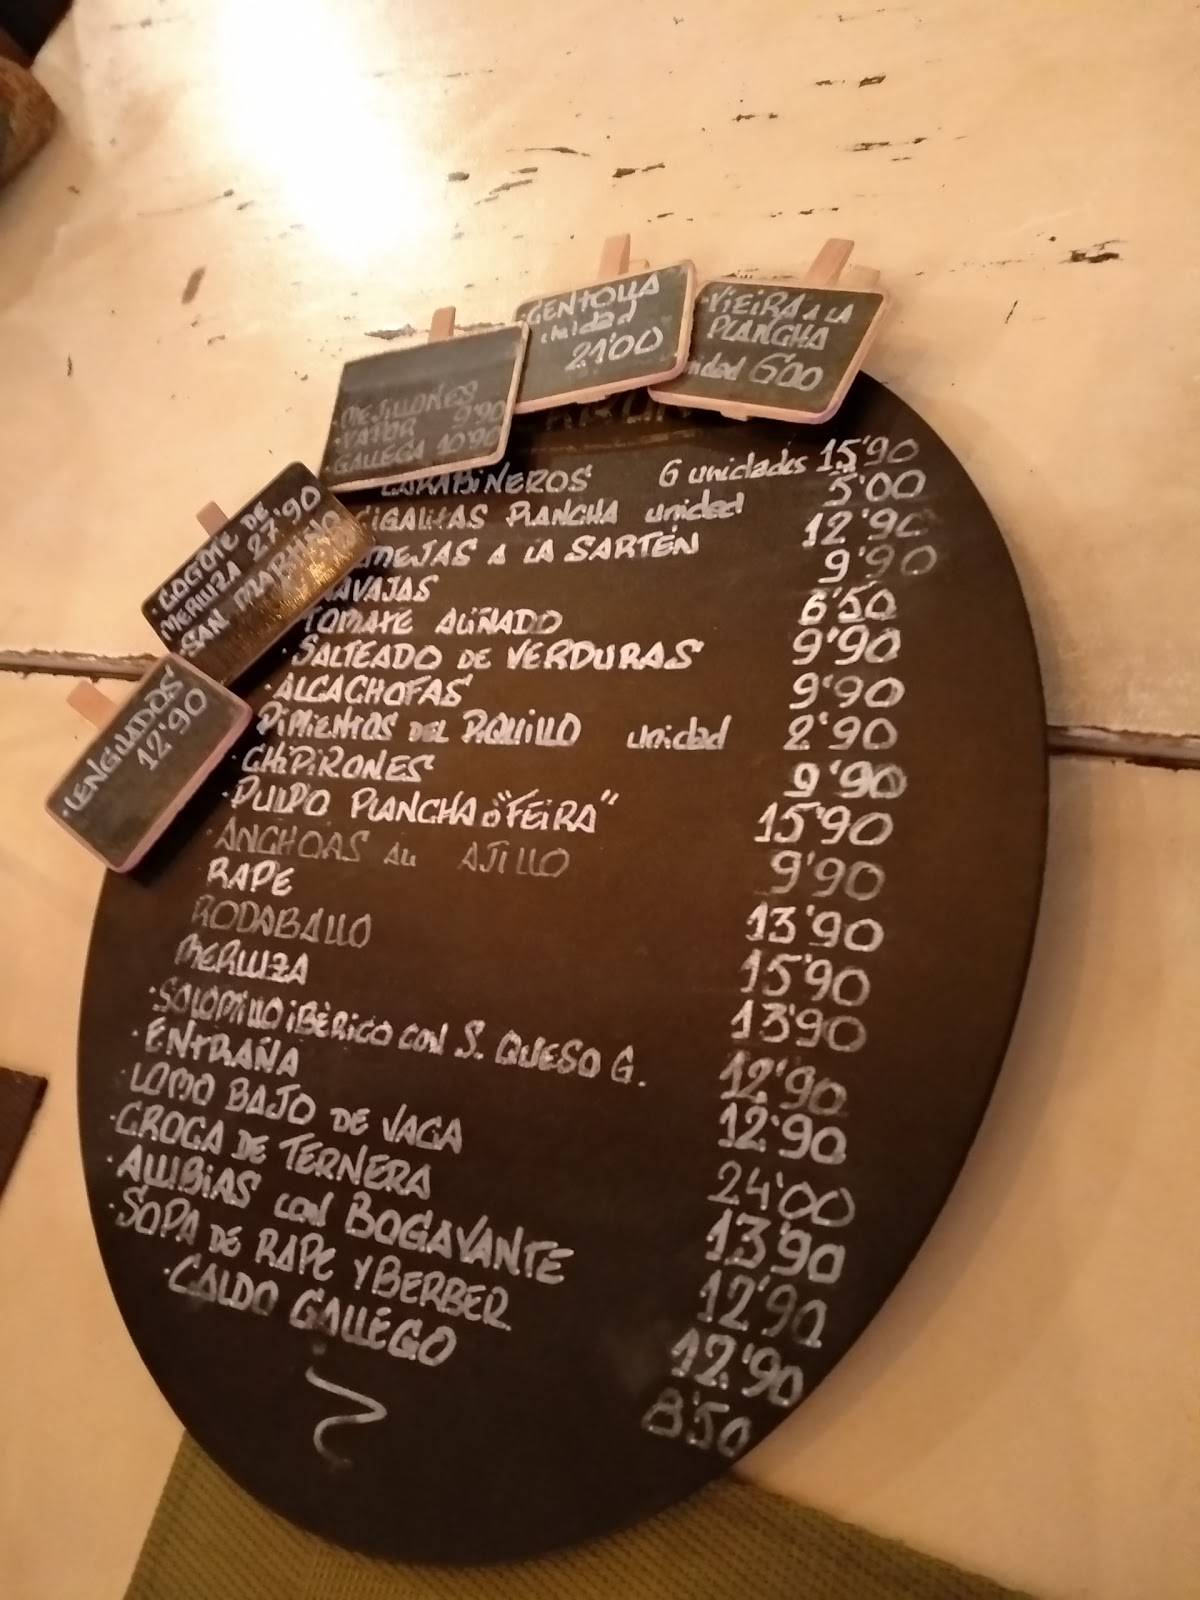 ·VIEIRA A LA
PLANCHA
nidad 6'00
CENTOLLA
unidad
21'00
MEJILLONES
·VAPOR 9'90
·GALLEGA 10'90
·COGOTE DE
MERLUZA 27'90
·SAN MARTIÑO
·LENGUADOS
12'90
CARABINEROS 6 unidades 15'90
CIGALITAS PLANCHA unidad 5'00
ALMEJAS A LA SARTÉN 12'90
NAVAJAS 9'90
TOMATE ALIÑADO 6'50
·SALTEADO DE VERDURAS 9'90
·ALCACHOFAS 9'90
PIMIENTOS DEL PIQUILLO unidad 2'90
·CHIPIRONES 9'90
·PULPO PLANCHA ó "FEIRA" 15'90
·ANCHOAS AL AJILLO 9'90
RAPE 13'90
RODABALLO 15'90
MERLUZA 13'90
·SOLOMILLO IBÉRICO CON S. QUESO G. 12'90
·ENTRAÑA 12'90
·LOMO BAJO DE VACA 24'00
·CROCA DE TERNERA 13'90
·ALUBIAS CON BOGAVANTE 12'90
·SOPA DE RAPE Y BERBER 12'90
·CALDO GALLEGO 8'50